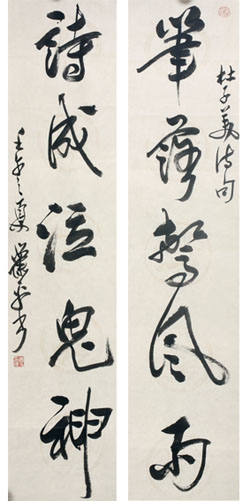 杜子美诗句
筆落驚风雨
詩成泣鬼神
壬午之夏